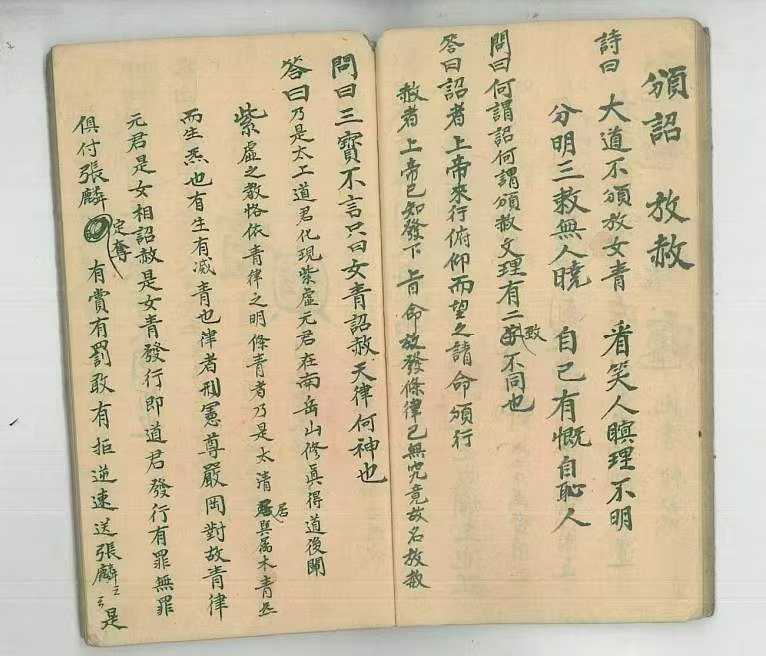 頒詔 放赦
詩曰 大道不頒放女青 看笑人瞑理不明
分明三救無人曉 自己有慨自恥人
問曰何謂詔何謂頒赦文理有二致不同也
答曰詔者上帝來行俯仰而望之請命頒行
赦者上帝已知發下旨命放發條律已無究竟故名放赦
問曰三寳不言只曰女青詔赦天律何神也
答曰乃是太工道君化現紫虛元君在南岳山修眞得道後闡
紫虛之教恪依青律之明條青者乃是太清居與属木青炁
而生炁也有生有减青也律者刑憲尊嚴罔對故青律
元君是女相詔赦是女青發行即道君發行有罪無罪
俱付張麟定奪有賞有罰敢有拒逆速送張麟 是